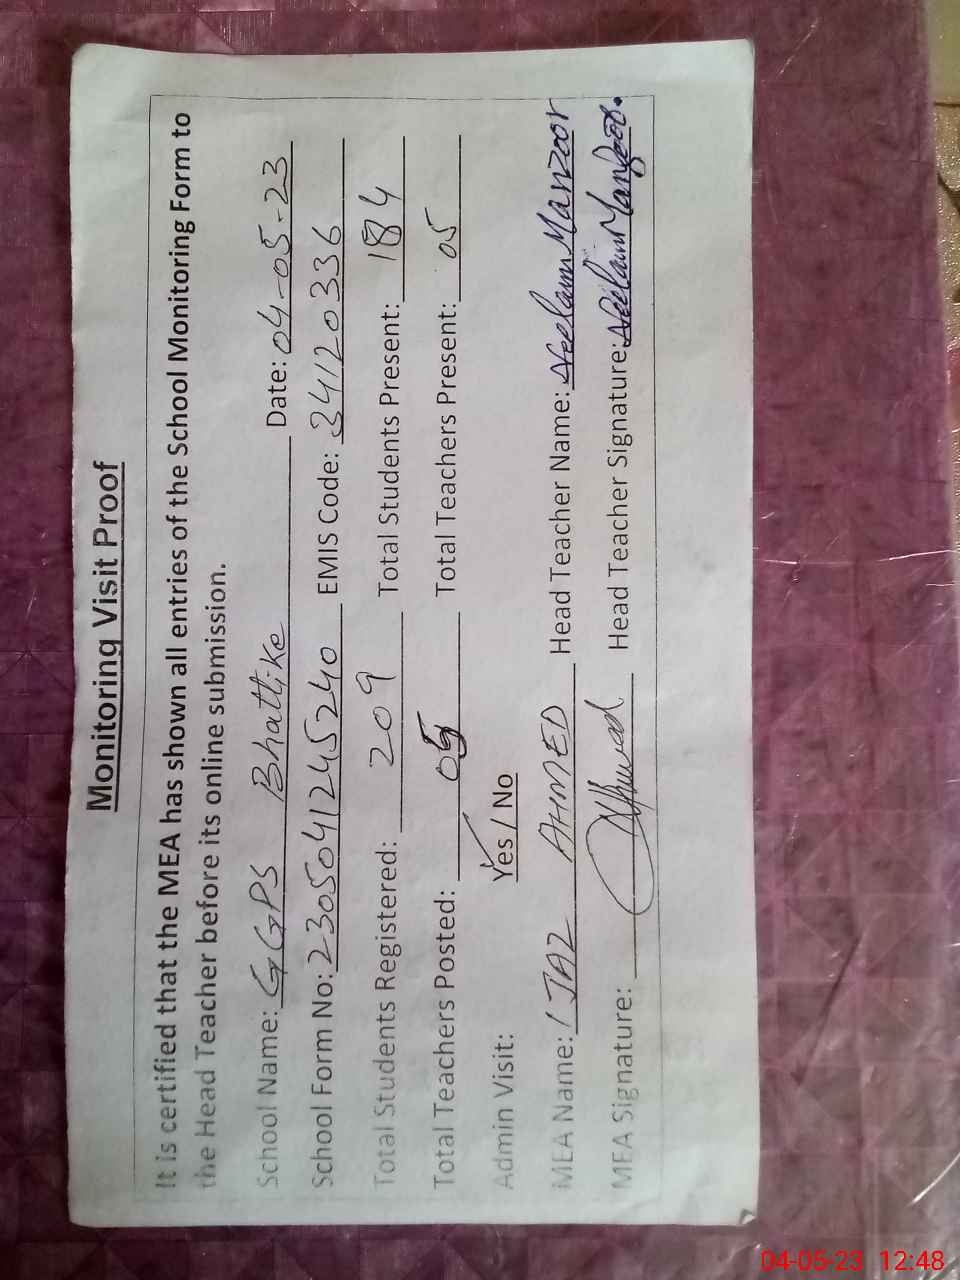 Monitoring Visit Proof
It is certified that the MEA has shown all entries of the School Monitoring Form to
the Head Teacher before its online submission.
School Name: GGPS Bhattike Date: 04-05-23
School Form No: 2305041245240 EMIS Code: 34120336
Total Students Registered: 209 Total Students Present: 184
Total Teachers Posted: 05 Total Teachers Present: 05
Admin Visit: Yes / No
MEA Name: IJAZ AHMED Head Teacher Name: Neelam Manzoor
MEA Signature: Ahmad Head Teacher Signature: Neelam Manzoor.
04-05-23 12:48